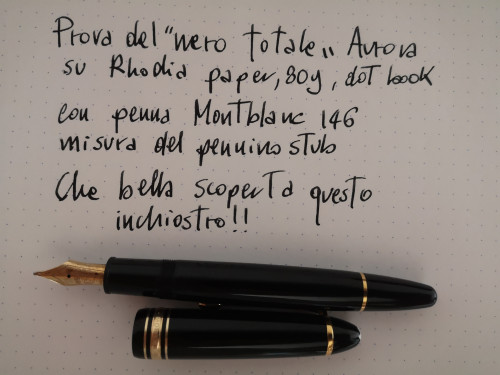 Prova del "nero totale„ Aurora
su Rhodia paper, 80g, dot book
con penna Montblanc 146
misura del pennino stub
Che bella scoperta questo
inchiostro!!